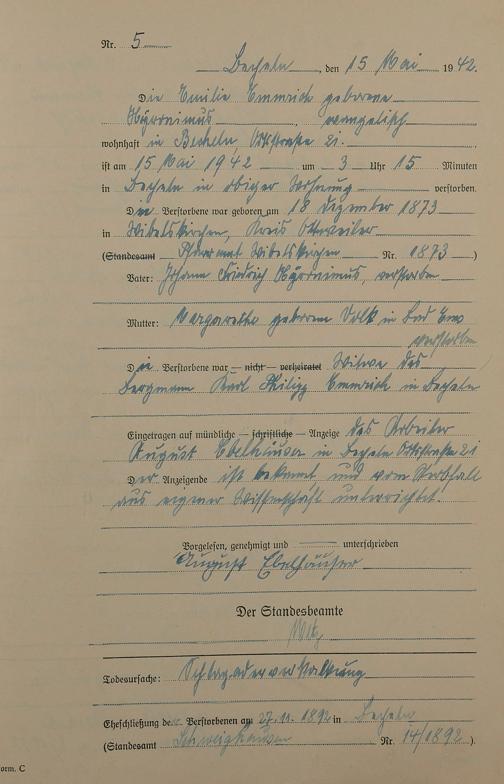 Nr. 5
Becheln, den 15 Mai 1942.
Die Emilie Emmrich geborene
Hyronimus, evangelisch
wohnhaft in Becheln, Ortsstraße 21.
ist am 15 Mai 1942 um 3 Uhr 15 Minuten
in Becheln in obiger Wohnung verstorben.
Die Verstorbene war geboren am 18 Dezember 1873
in Wibelskirchen, Kreis Ottweiler
(Standesamt Pfarramt Wibelskirchen Nr. 1873)
Vater: Johann Friedrich Hyronimus, verstorben
Mutter: Margarethe geborene Volk in Bad Ems
verstorben
Die Verstorbene war — nicht — verheiratet Witwe des
Bergmann Karl Philipp Emmrich in Becheln
Eingetragen auf mündliche — schriftliche — Anzeige des Arbeiter
August Ebelhäuser in Becheln Ortsstraße 21
Der Anzeigende ist bekannt und vom Sterbfall
aus eigener Wissenschaft unterrichtet.
Vorgelesen, genehmigt und unterschrieben
August Ebelhäuser
Der Standesbeamte
Todesursache: Schlagaderverkalkung
Eheschließung der Verstorbenen am 27.11.1892 in Becheln
(Standesamt Schweighausen Nr. 14/1892).
orm. C